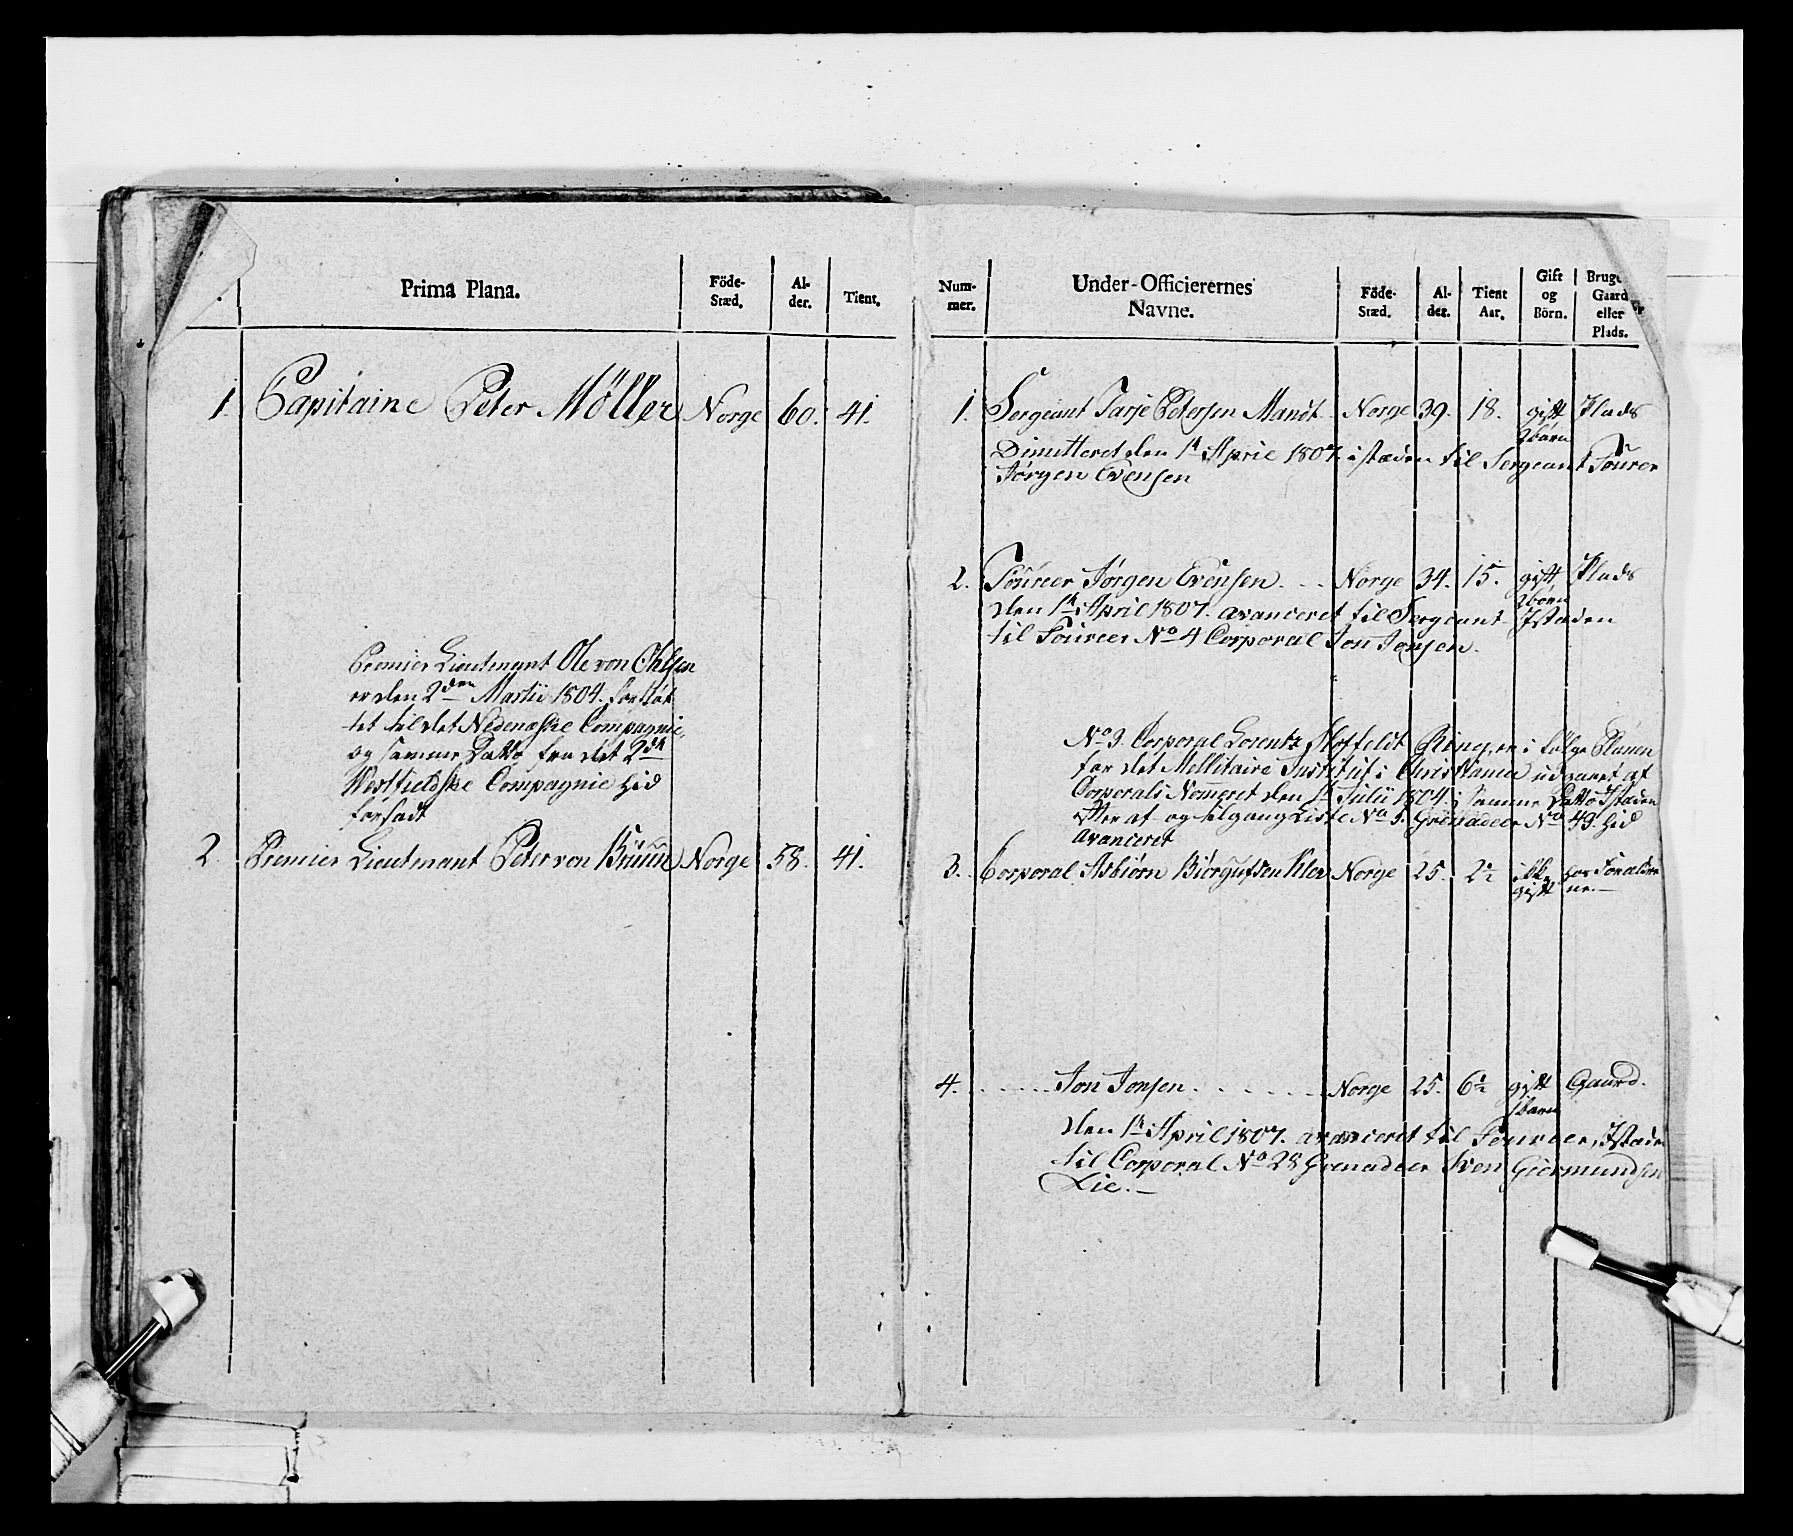 Prima Plana.
Föde-
Stæd.
Al-
der.
Tient.
1. Capitaine Peter Möller Norge 60. 41.
Premier Lieutenant Ole von Ohlsen
er den 2den Martii 1804. forflöt
tet til det Nedenæske Compagnie,
og samme Datto fra det 2det
Westfieldske Compagnie hid
forsadt
2. Premier Lieutenant Peter von Bruun Norge 58. 41.
Num-
mer.
Under-Officierernes
Navne.
Föde-
Stæd.
Al-
der.
Tient
Aar.
Gift
og
Börn.
Gaard
eller
Plads.
1. Sergeant Tarje Petersen Mandt Norge 39. 18. gift Plads
2 börn
Dimitteret den 1te April 1807. i stæden til Sergeant Fourer
Jörgen Evensen
2. Foureer Jörgen Evensen Norge 34. 15. gift Plads
2 börn
den 1te April 1807. avanceret til Sergeant Istæden
til Foureer No 4 Corporal Jon Jonsen.
No 3. Corporal Lorentz Ring, er i følge Planen
for det Millitaire Institut i Christiania udgaaet af
Corporals Nomeret den 1te Julii 1804. i samme Datto Istæden
efter af og tilgang Liste No 5. Grenadeer No 49. hid
avanceret
3. Corporal Asbiörn Norge 25. 2½ ikke hos Forældre
gift ne.
4. Jon Jonsen Norge 25. 6½ gift Gaard.
1 barn
den 1te April 1807. avanceret til Foureer, Istæden
til Corporal No 28 Grenadeer Sven Giermundsen
Lie.